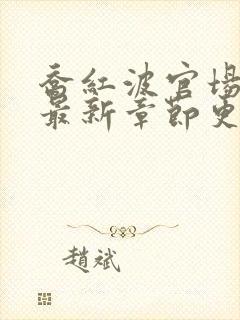 乔红波官场
最新章节更
趙斌